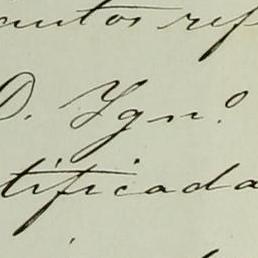 antos ref
D. Ygn.º
tificada